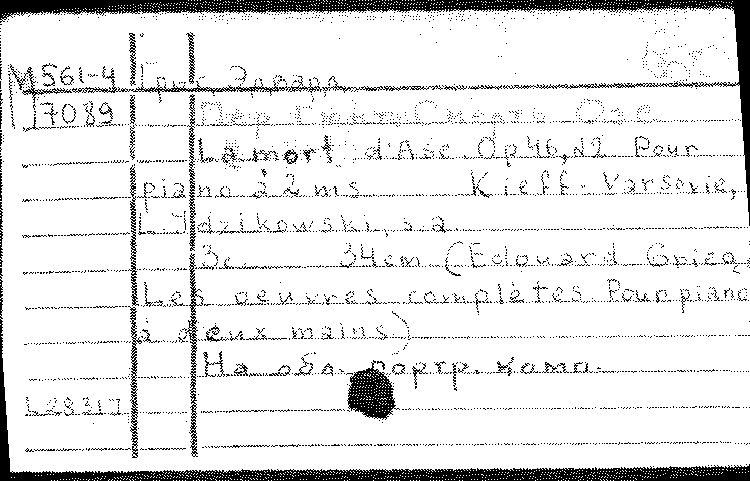 М 561-4 Григ, Эдвард
7089 Пер Гюнт. Смерть Озе
La mort d'Ase. Op 46, №2 Pour
piano à 2 ms Kieff-Varsovie,
L. Idzikowski, s.a.
3с. 34cm (Edouard Grieg.
Les oeuvres complètes Pour piano
à deux mains)
На обл. портр. комп.
L28317